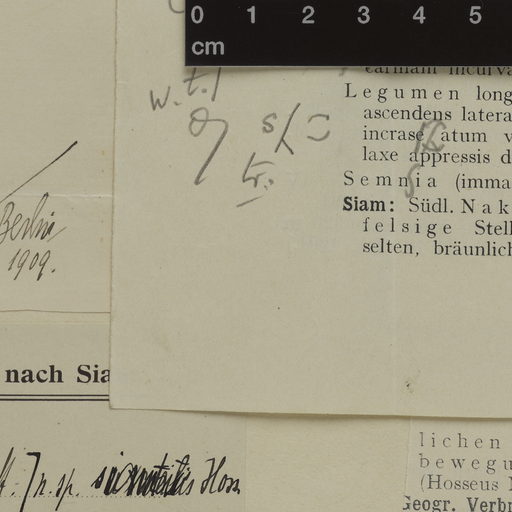 0 1 2 3 4 5
cm
w.t.
carinam incurva
Legumen long
ascendens latera
incrasc atum v
laxe appressis d
Semnia (imma
Siam: Südl. Nak
felsige Stell
selten, bräunlich
Berlin
1909.
nach Sia
n. sp. Hoss
lichen
bewegu
(Hosseus
Geogr. Verbr